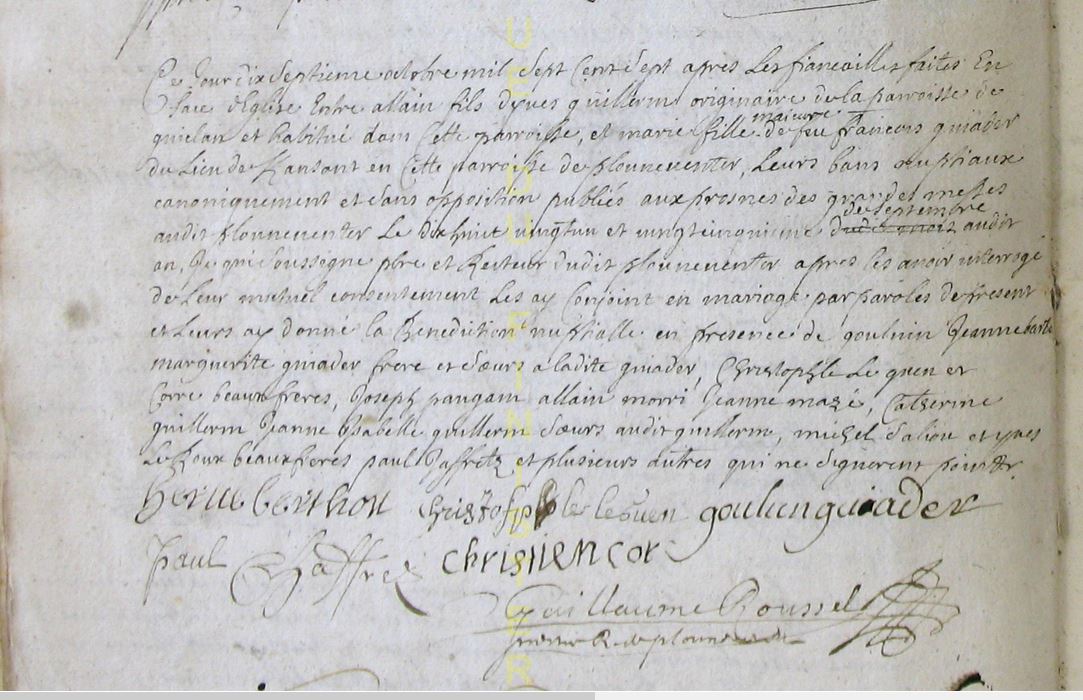 Ce jour dix septieme octobre mil sept cent sept apres les fiancailles faites En
face d'Eglise Entre allain fils d'yves guillerm originaire de la parroisse de
guiclan et habitué dans cette parroisse, et marie fille majeure de feu francois guiader
du Lieu de en cette parroisse de plouneventer, Leurs bans nuptiaux
canoniquement et sans opposition publiés aux prosnes des grandes messes
audit plouneventer Le dixhuit vingtun et vingtcinquieme de septembre audit
an, Je qui soussigne pbre et Recteur dudit plouneventer apres les avoir interrogé
de Leur mutuel consentement Les ay Conjoint en mariage par paroles de present
et Leurs ay donné la Benediction nuptialle en presence de goulvin Jeanne
marguerite guiader frere et sœurs a ladite guiader, Christophle Le guen et
Corre beaux freres, Joseph pangam allain morri Jeanne mazé, Catherine
guillerm Jeanne Isabelle guillerm sœurs audit guillerm, michel et yves
Le Roux beaux freres paul Jaffretz et plusieurs autres qui ne signerent
herve berthou christophle le guen goulven guiader
Paul Jaffrez christien cor
Guillaume Roussel
R. de